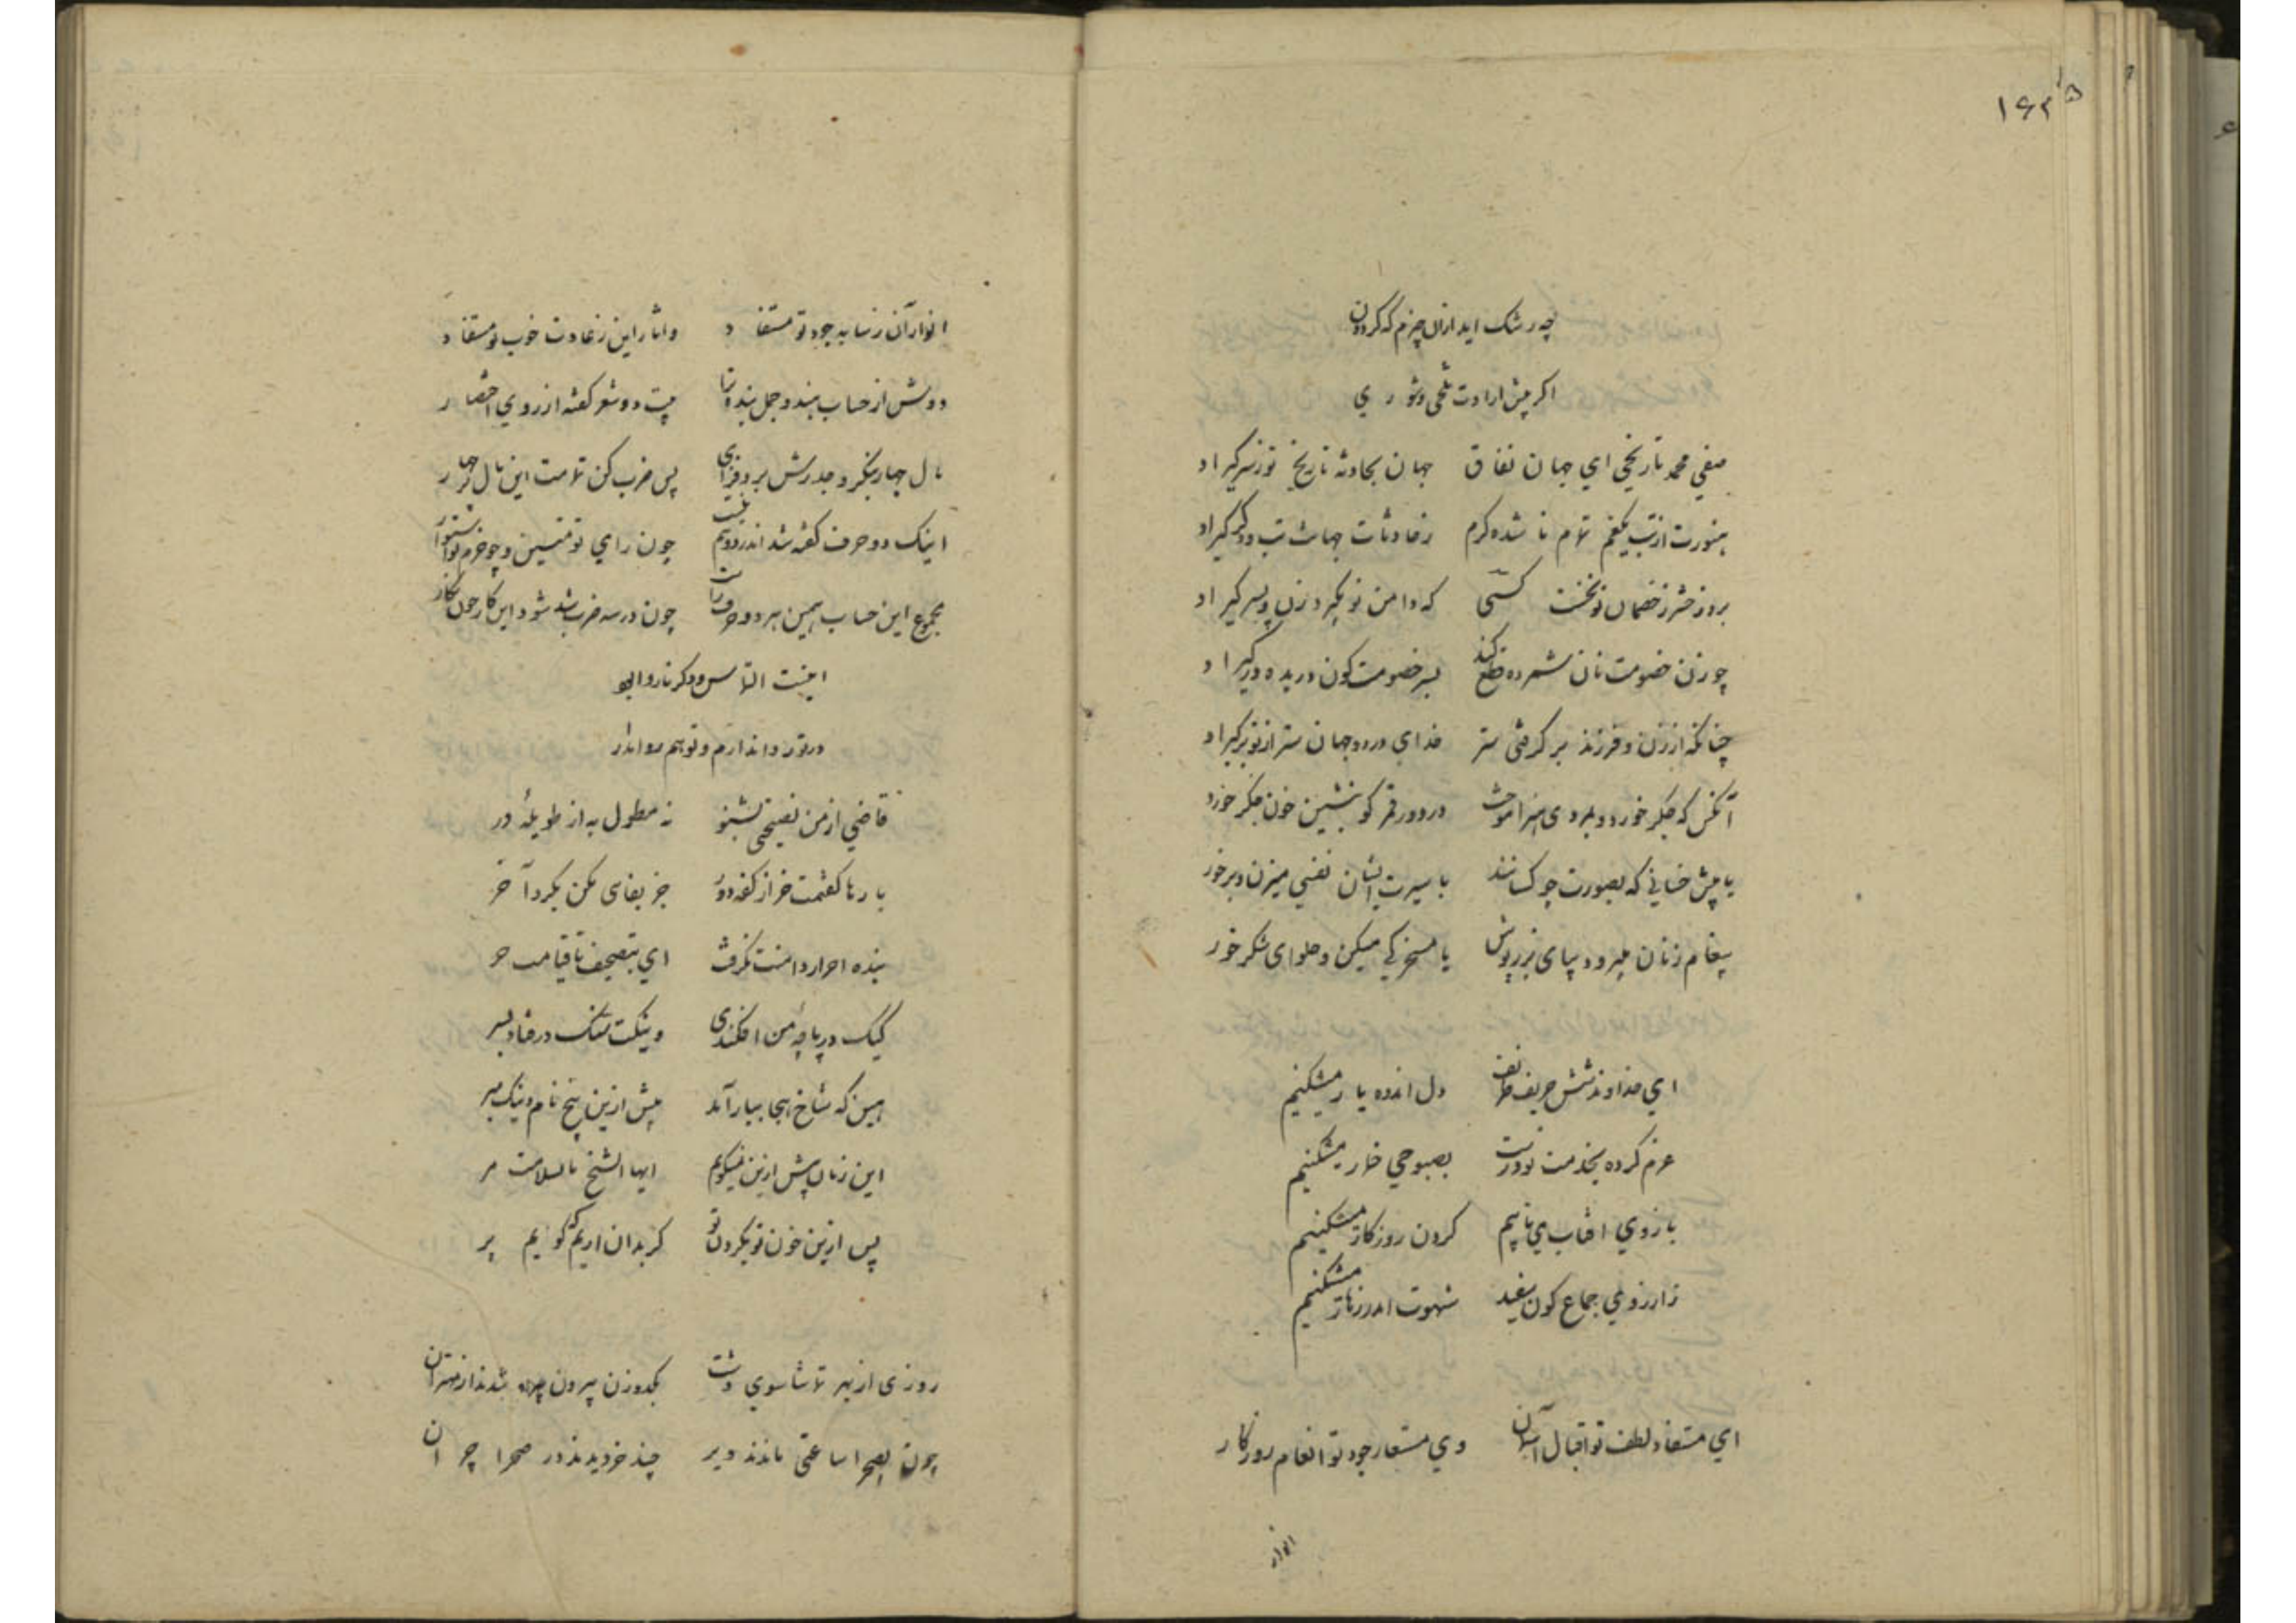 ۱۶۳
چه رشک اید ازان چیزم که کردون
اگر پیش ارادت
صفی محمد تاریخی ای جهان نفاق جهان بحادثه تاریخ تو ز سر کیراد
هنوزت از تب یکغم تمام نا شده کرم ز حادثات جهانت تب دکر کیراد
بروز حشر ز خصمان تو نخست کسی که دامن تو بکیرد زن و پسر کیراد
چو زن خصومت نان شمرده قطع کند پسر خصومت کون دریده در کیراد
چنانکه از زن و فرزند بر کرفتی ستر خدای در دو جهان ستر از تو بر کیراد
آنکس که جکر خورد و بمردی هنر آموخت در دور قمر کو بنشین خون جکر خور
یا پیش خسانی که بصورت چو کسانند با سیرت ایشان نفسی میزن و برخور
پیغام زنان میبر و دیبای بزر پوش یا مسخرکی میکن و حلوای شکر خور
ای خداوند شش حریف ظریف دل اندوه یار میشکنیم
عزم کرده بخدمت تو درست بصبوحی خمار میشکنیم
بازوی افتاب می تابیم کردن روزکار میشکنیم
ز ارزوی جماع کون سفید شهوت اندر زهار میشکنیم
ای مستفاد لطف تو اقبال آسمان وی مستعار جود تو انعام روزکار
انوار
انوار آن ز سایه جود تو مستفاد واثار این ز عادت خوب تو مستفاد
دوش از حساب هند و جمل بنده ترا بیت دو شعر کفته از روی اختصار
مال چهار بنکر و جذرش برو فزای پس ضرب کن تمامت این مال در چهار
اینک دو حرف کفته شد اندر دو نیم بیت چون رای تو متین و چو حزم تو استوار
مجموع این حساب همین هر دو حرف راست چون در سه ضرب شد شود این کار چون نکار
اینست التماس و دکر ناروا بود
در تو روا ندارم و تو هم روا مدار
قاضی از من نصیحتی بشنو نه مطول به از طویله در
بارها کفتمت خر از کفه دور جز بغای مکن بکرد آخر
بنده احرار دامنت نکرفت ای بتصحیف تا قیامت حر
کیک در پاچه من افکندی وینکت سنک درفتاد بسر
هین که شاخ هجا ببار آمد بیش ازین بیخ نام و ننک مبر
این زمان بیش ازین نمیکویم ایها الشیخ بالسلامة مر
پس ازین خون تو بکردن تو کر بدان اریم که کویم پر
روزی از بهر تماشا سوی دشت یکدو زن بیرون شدند از مهتران
چون بصحرا ساعتی ماندند دیر چند خر دیدند در صحرا چران